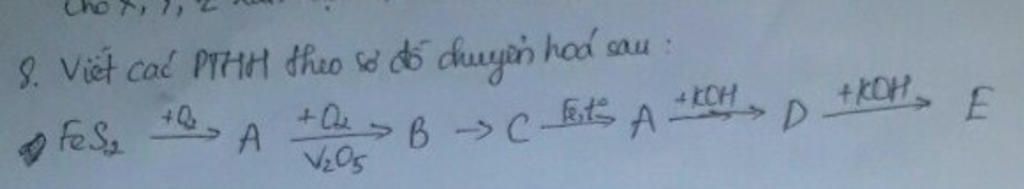 Cho X, Y, Z
8. Viết các PTHH theo sơ đồ chuyển hoá sau :
FeS₂ +O₂→ A +O₂→ V₂O₅ B → C Fe,t°→ A +KOH→ D +KOH→ E